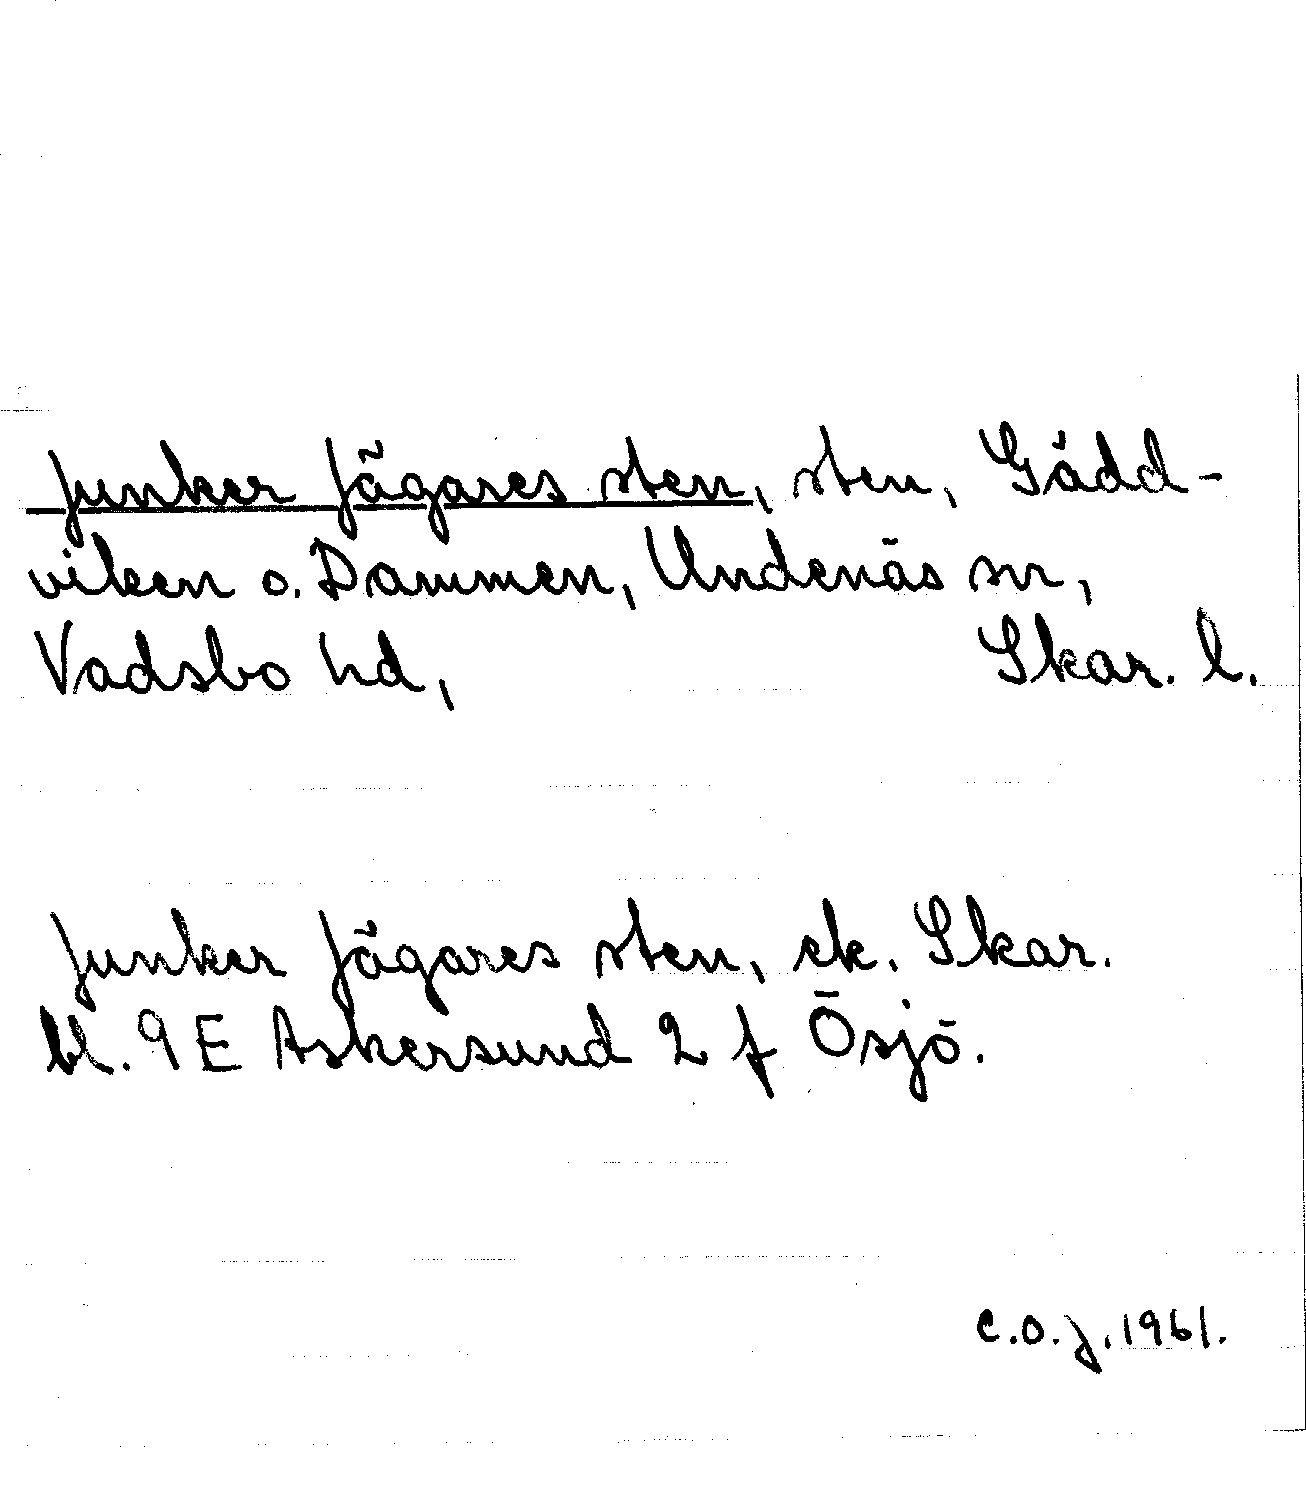 Junker Jägares sten, sten, Gädd-
viken o. Dammen, Undenäs sn,
Vadsbo hd, Skar. l.
Junker Jägares sten, ek. Skar.
bl. 9 E Askersund 2 f Ösjö.
C.O.J. 1961.